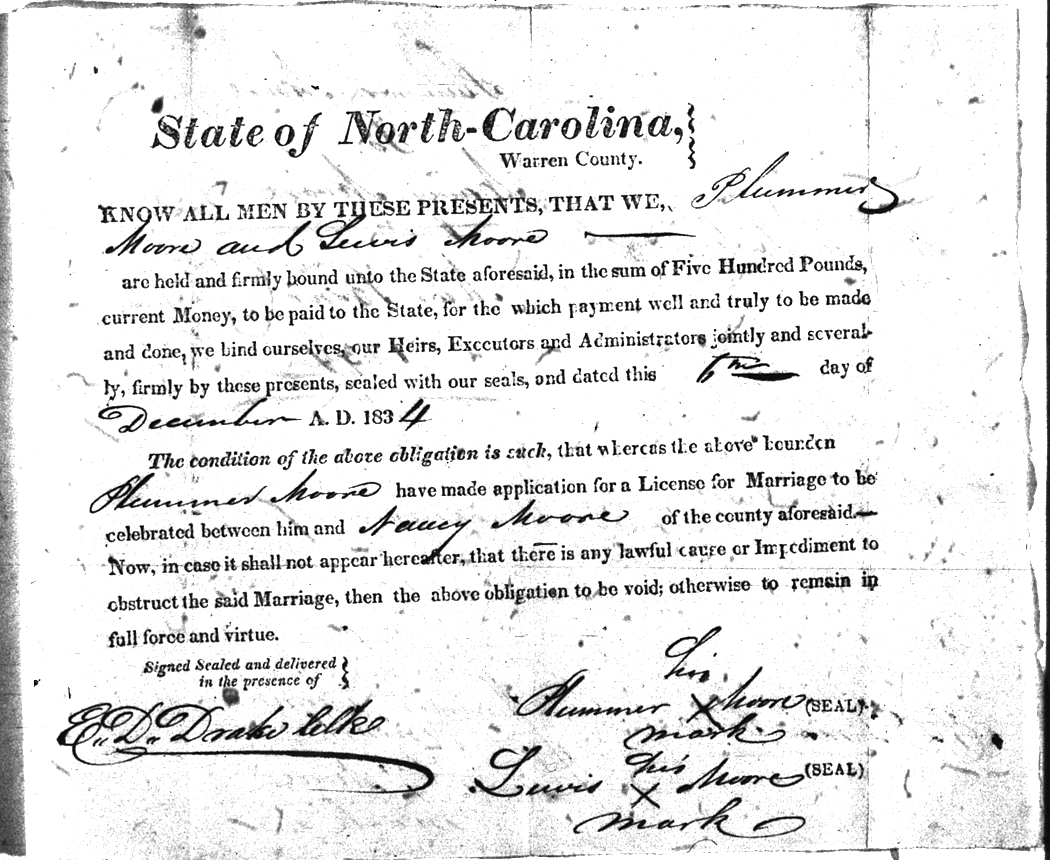 State of North-Carolina,
Warren County.
KNOW ALL MEN BY THESE PRESENTS, THAT WE, Plummer
Moore and Lewis Moore
are held and firmly bound unto the State aforesaid, in the sum of Five Hundred Pounds,
current Money, to be paid to the State, for the which payment well and truly to be made
and done, we bind ourselves, our Heirs, Executors and Administrators jointly and several-
ly, firmly by these presents, sealed with our seals, and dated this 6th day of
December A. D. 1834
The condition of the above obligation is such, that whereas the above bounden
Plummer Moore have made application for a License for Marriage to be
celebrated between him and Nancy Moore of the county aforesaid.—
Now, in case it shall not appear hereafter, that there is any lawful cause or Impediment to
obstruct the said Marriage, then the above obligation to be void; otherwise to remain in
full force and virtue.
Signed Sealed and delivered
in the presence of
E. D. Drake Clk
his
Plummer X Moore (SEAL)
mark
Lewis his X Moore (SEAL)
mark